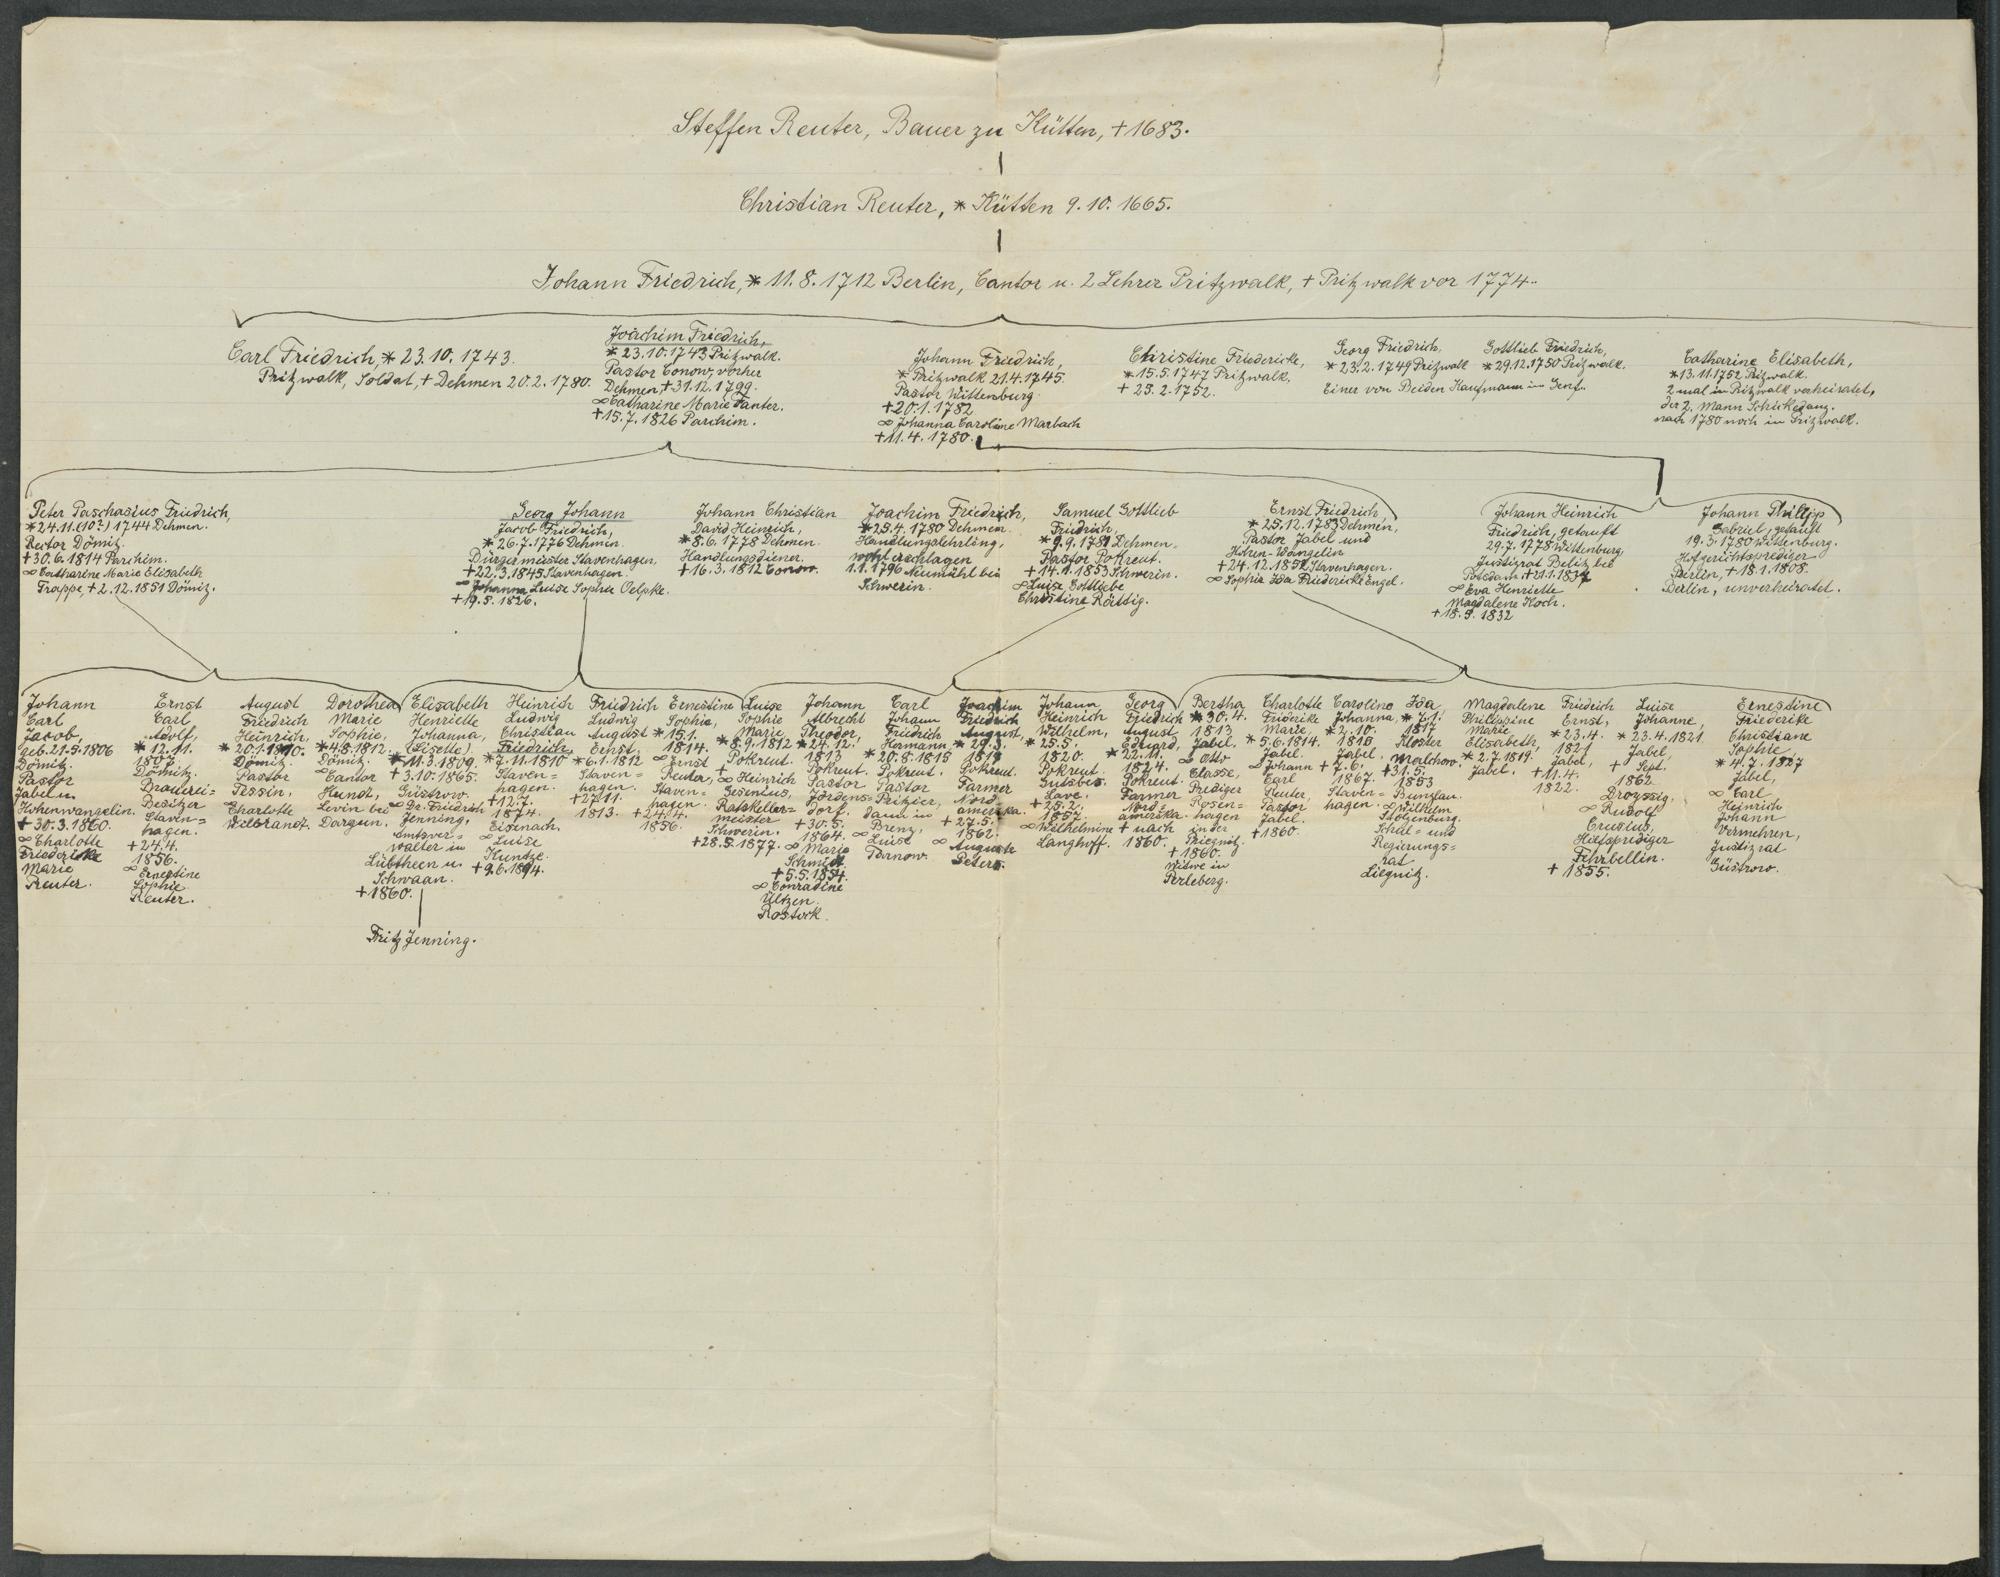 Steffen Reuter, Bauer zu Kütten, + 1683.
Christian Reuter, * Kütten 9.10.1665.
Johann Friedrich, * 11.8.1712 Berlin, Cantor u. 2 Lehrer Pritzwalk, + Pritzwalk vor 1774.
Carl Friedrich, * 23.10.1743.
Pritzwalk, Soldat, + Dehmen 20.2.1780.
Joachim Friedrich,
* 23.10.1743 Pritzwalk.
Pastor Conow, vorher
Dehmen, + 31.12.1799.
∞ Catharine Marie Fanter.
+ 15.7.1826 Parchim.
Johann Friedrich,
* Pritzwalk 21.4.1745.
Pastor Wittenburg.
+ 20.1.1782
∞ Johanna Caroline Marbach
+ 11.4.1780.
Christine Friedericke,
* 15.5.1747 Pritzwalk,
+ 25.2.1752.
Georg Friedrich,
* 23.2.1749 Pritzwalk
Gottlieb Friedrich,
* 29.12.1750 Pritzwalk.
Einer von Beiden Kaufmann in Genf.
Catharine Elisabeth,
* 13.11.1752 Pritzwalk.
2 mal in Pritzwalk verheiratet,
der 2. Mann Schickedanz.
nach 1780 noch in Pritzwalk.
Peter Paschasius Friedrich,
* 24.11.(10?) 1744 Dehmen.
Rector Dömitz.
+ 30.6.1814 Parchim.
∞ Catharine Marie Elisabeth
Trappe, + 2.12.1851 Dömitz.
Georg Johann
Jacob Friedrich,
* 26.7.1776 Dehmen.
Bürgermeister Stavenhagen,
+ 22.3.1845 Stavenhagen.
∞ Johanna Luise Sophie Oelpke.
+ 19.5.1826.
Johann Christian
David Heinrich,
* 8.6.1778 Dehmen.
Handlungsdiener.
+ 16.3.1812 Conow.
Joachim Friedrich,
* 25.4.1780 Dehmen.
Handlungslehrling,
wohl erschlagen
1.1.1796 Neumühl bei
Schwerin.
Samuel Gottlieb
Friedrich,
* 9.9.1781 Dehmen.
Pastor Pokrent.
+ 14.1.1853 Schwerin.
∞ Luise Gottliebe
Christine Rättig.
Ernst Friedrich,
* 25.12.1783 Dehmen,
Pastor Jabel und
Hohen-Wangelin
+ 24.12.1851 Stavenhagen.
∞ Sophie Ida Friedericke Engel.
Johann Heinrich
Friedrich, getauft
29.7.1778 Wittenburg,
Justizrat Belitz bei
Potsdam, + 21.1.1834
∞ Eva Henriette
Magdalene Koch.
+ 18.9.1832
Johann Philipp
Gabriel, getauft
19.3.1780 Wittenburg.
Hofgerichtsprediger
Berlin, + 18.1.1808.
Berlin, unverheiratet.
Johann
Carl
Jacob,
geb. 21.5.1806
Dömitz.
Pastor
Jabel u.
Hohenwangelin.
+ 30.3.1860.
∞ Charlotte
Friedericke
Marie
Reuter.
Ernst
Carl
Adolf,
* 12.11.
1807.
Dömitz.
Brauerei=
Besitzer
Staven=
hagen.
+ 24.4.
1856.
∞ Ernestine
Sophie
Reuter.
August
Friedrich
Heinrich,
* 20.1.1810.
Dömitz.
Pastor
Tessin,
∞ Charlotte
Wilbrandt.
Dorothea
Marie
Sophie,
* 4.8.1812.
Dömitz.
∞ Cantor
Hundt,
Levin bei
Dargun.
Elisabeth
Henriette
Johanna,
(Lisette).
* 11.3.1809.
+ 3.10.1865.
Güstrow.
∞ Dr. Friedrich
Jenning,
Amtsver=
walter in
Lübtheen u.
Schwaan.
+ 1860.
Fritz Jenning.
Heinrich
Ludwig
Christian
Friedrich,
* 7.11.1810
Staven=
hagen.
+ 12.7.
1874.
Eisenach.
∞ Luise
Kuntze.
+ 9.6.1894.
Friedrich
Ludwig
August
Ernst,
* 6.1.1812
Staven=
hagen.
+ 27.11.
1813.
Ernestine
Sophie,
* 15.1.
1814.
∞ Ernst
Reuter,
Staven=
hagen.
+ 24.4.
1856.
Luise
Sophie
Marie
* 8.9.1812
Pokrent.
∞ Heinrich
Gesenius,
Ratskeller=
meister
Schwerin.
+ 28.5.1877.
Johann
Albrecht
Theodor,
* 24.12.
1813
Pokrent.
Pastor
Jördens=
dorf.
+ 30.5.
1864.
∞ Marie
Schmidt
+ 5.5.1854.
∞ Conradine
Ultzen.
Rostock.
Carl
Johann
Friedrich
Hermann,
* 20.8.1815
Pokrent.
Pastor
Pritzier,
dann in
Brenz,
∞ Luise
Pernow.
Joachim
Friedrich
August,
* 29.3.
1819
Pokrent.
Farmer
Nord
amerika.
+ 27.5.
1862.
∞ Auguste
Peters.
Johann
Heinrich
Wilhelm,
* 25.5.
1820.
Pokrent.
Gutsbes.
Lave.
+ 25.2.
1857.
∞ Wilhelmine
Langhoff.
Georg
Friedrich
August
Eduard,
* 22.11.
1824.
Pokrent.
Farmer
Nord=
amerika.
+ nach
1860.
Bertha
* 30.4.
1813
Jabel.
∞ Otto
Classe,
Prediger
Rosen=
hagen
in der
Priegnitz.
+ 1860.
Witwe in
Perleberg.
Charlotte
Friderike
Marie,
* 5.6.1814.
Jabel.
∞ Johann
Carl
Reuter,
Pastor
Jabel.
+ 1860.
Caroline
Johanna,
* 2.10.
1816
Jabel.
+ 7.6.
1867.
Staven=
hagen.
Ida,
* 7.1.
1817
Kloster
Malchow.
+ 31.5.
1853
Bunzlau.
∞ Wilhelm
Stolzenburg.
Schul= und
Regierungs=
rat
Liegnitz.
Magdalene
Philippine
Marie
Elisabeth,
* 2.7.1819.
Jabel.
Friedrich
Ernst,
* 23.4.
1821
Jabel,
+ 11.4.
1822.
Luise
Johanne,
* 23.4.1821.
Jabel,
+ Sept.
1862
Droyssig.
∞ Rudolf
Crusius,
Hilfsprediger
Fehrbellin.
+ 1855.
Ernestine
Friederike
Christiane
Sophie,
* 4.7.1827
Jabel,
∞ Carl
Heinrich
Johann
Vermehren,
Justizrat
Güstrow.